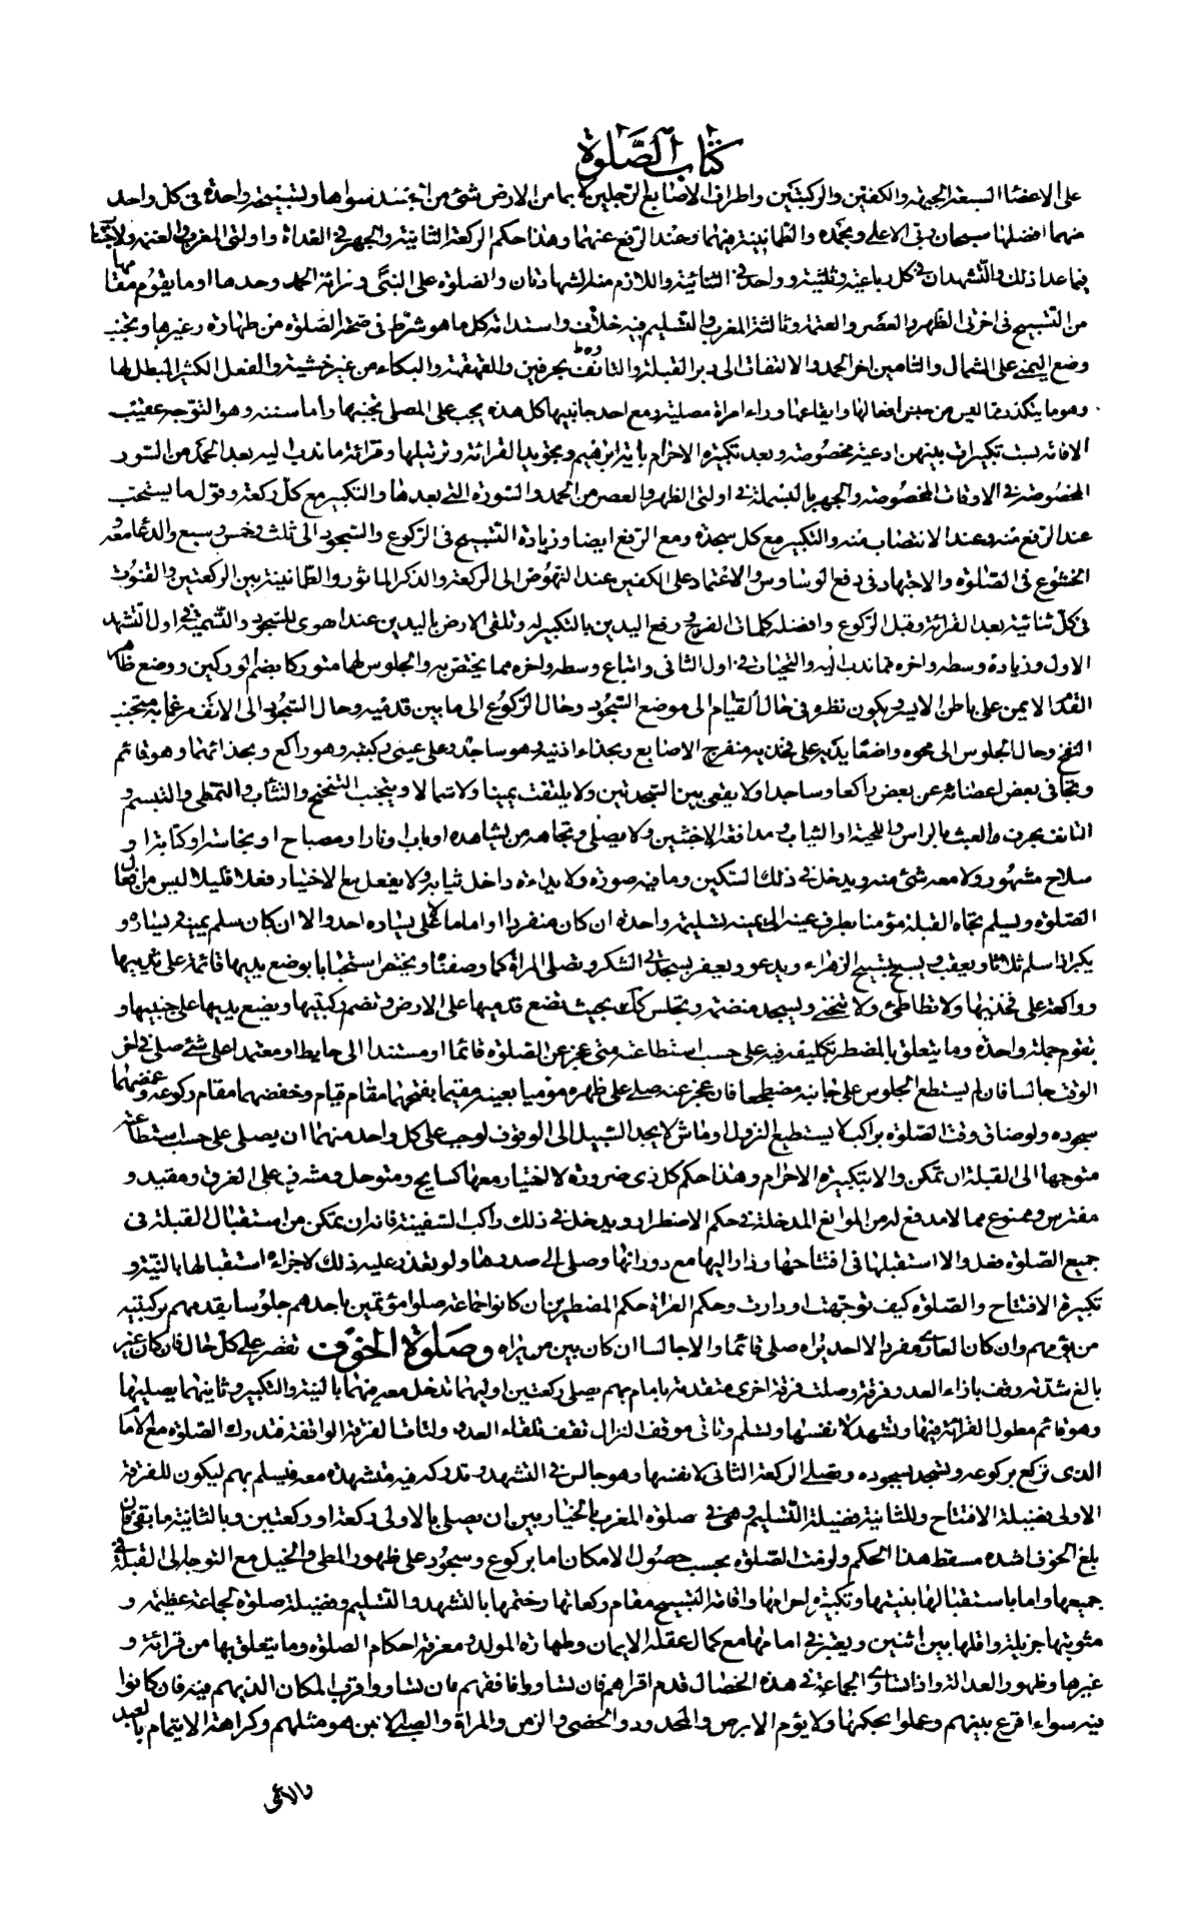 كتاب الصلوة
على الاعضاء السبعة الجبهة والكفين والركبتين واطراف الاصابع الرجلين بما من الارض شئ من جسد سواها وتسبيحة واحدة في كل واحد
منهما افضلها سبحان ربي الاعلى وبحمده والطمانينة فيهما وعند الرفع عنهما وهذا حكم الركعة الثانية والجهر في الغداة واولتى المغرب والعتمة والاخفات
فيما عدا ذلك والتشهدان في كل رباعية وثلثية وواحد في الثنائية واللازم منه الشهادتان والصلوة على النبي وقرائة الحمد وحدها او ما يقوم مقامها
من التسبيح في اخرتى الظهر والعصر والعتمة وثالثة المغرب والتسليم فيه خلاف واستدامة كل ما هو شرط في صحة الصلوة من طهارة وغيرها وتجنب
وضع اليمنى على الشمال والتامين اخر الحمد والالتفات الى دبر القبلة والتافف بحرفين والقهقهة والبكاء من غير خشية والفعل الكثير المبطل لها
وهو ما يتكرر مما ليس من جنس افعالها وايقاعها وراء امراة مصلية ومع احد جانبيها كل هذه يجب على المصلى تجنبها واما سننه وهو التوجه عقيب
الاقامة بست تكبيرات بينهن ادعية مخصوصة وبعد تكبيرة الاحرام باية ابراهيم وتجويد القرائة وترتيلها وقرائة ما ندب اليه بعد الحمد من السور
المخصوصة في الاوقات المخصوصة والجهر بالبسملة في اولتى الظهر والعصر من الحمد والسورة التي بعدها والتكبير مع كل ركعة وقول ما يستحب
عند الرفع منه وعند الانتصاب منه والتكبير مع كل سجدة ومع الرفع ايضا وزيادة التسبيح في الركوع والسجود الى ثلث وخمس وسبع والدعاء معه و
الخشوع في الصلوة والاجتهاد في دفع الوساوس والاعتماد على الكفين عند النهوض الى الركعة والذكر الماثور والطمانينة بين الركعتين والقنوت
في كل ثنائية بعد القرائة وقبل الركوع وافضله كلمات الفرج ورفع اليدين بالتكبير له وتلقى الارض باليدين عند اهوى للسجود والتسمية في اول التشهد
الاول وزيادة وسطه واخره مما ندب اليه والتحيات في اول الثاني واتباع وسطه واخره مما يختص به والجلوس لهما متوركا بضم الوركين ووضع ظاهر
القدم الايمن على باطن الايسر ويكون نظره في حال القيام الى موضع السجود وحال الركوع الى ما بين قدميه وحال السجود الى الانف مرغما به متجنب
النفخ وحال الجلوس الى حجره واضعا يديه على فخذيه منفرج الاصابع وبحذاء اذنيه وهو ساجد وعلى عيني ركبتيه وهو راكع وبحذائهما وهو قائم
ويتجافى بعض اعضائه عن بعض راكعا وساجدا ولا يقعى بين السجدتين ولا يلتفت يمينا ولا شمالا ويتجنب التنخح والتثاب والتمطى والتبسم و
التافف بحرف والعبث بالراس واللحية او الثياب ومدافعة الاخبثين ولا يصلى وتجاهه من يشاهده او باب او نار او مصباح او نجاسة او كتابة او
سلاح مشهور ولا معه شئ منه ويدخل في ذلك السكين وما فيه صورة ولا يداه داخل ثيابه ولا يفعل مع الاختيار فعلا قليلا ليس من افعال
الصلوة ويسلم تجاه القبلة مؤمنا بطرف عينه الى يمينه تسليمة واحدة ان كان منفردا او اماما على يساره احد والا ان كان سلم يمينه ويساره و
يكبر اذا سلم ثلاثا ويعقب ويسبح تسبيح الزهراء ويدعو ويعفر بسجدتي الشكر وتصلى المراة كما وصفناه ويختص استحبابا بوضع يديها قائمة على ثدييها
وراكعة على فخذيها ولا تطاطئ ولا تنحني وتسجد منضمة وتجلس كذلك بحيث تضع قدميها على الارض وتضم ركبتيها وتضع يديها على جنبيها و
تقوم جملة واحدة وما يتعلق بالمضطر تكليفه فيه على حسب استطاعته متى عجز عن الصلوة قائما او مستندا الى حايط او معتمدا على شئ صلى في اخر
الوقت جالسا فان لم يستطع الجلوس على جانبه مضطجعا فان عجز عنه صلى على ظهره موميا بعينيه مقيما بفتحهما مقام قيام وخفضهما مقام ركوعه وغمضهما
سجوده ولو ضاق وقت الصلوة براكب لا يستطيع النزول او ماش لا يجد السبيل الى الوقوف لوجب على كل واحد منهما ان يصلى على حسب استطاعته
متوجها الى القبلة ان تمكن والا بتكبيرة الاحرام وهذا حكم كل ذى ضرورة لا اختيار معها كسابح ومتوحل ومشرف على الغرق ومقيد و
مفترس وممنوع مما لا مدفع له من الموانع المدخلة في حكم الاضطرار ويدخل في ذلك راكب السفينة فانه ان تمكن من استقبال القبلة في
جميع الصلوة فعل والا استقبلها في افتتاحها ودار اليها مع دورانها وصلى الى صدرها ولو تعذر عليه ذلك لاجزاه استقبالها بالنية و
تكبيرة الافتتاح والصلوة كيف توجهت او دارت وحكم العراة حكم المضطرين ان كانوا جماعة صلوا مؤتمين باحدهم جلوسا يقدمهم بركبتيه
من يؤمهم وان كان العارى مفردا لا احد يراه صلى قائما والا جالسا ان كان بين من يراه وصلوة الخوف تقصر على كل حال فان كان غير
بالغ شدته وقف بازاء العدو فرقة وصلت فرقة اخرى متقدمة بامام بهم يصلى ركعتين اوليهما تدخل معه فيهما بالنية والتكبير وثانيتهما يصليها
وهو قائم مطول القرائة فيها وتشهد لانفسها وتسلم وتاتى موقف النزال تقف تلقاء العدو ولتات الفرقة الواقفة فتدرك الصلوة مع الامام
الذى تركع بركوعه وتسجد بسجوده وتصلى الركعة الثاني لانفسها وهو جالس في التشهد وتدركه فيه متشهدة معه فيسلم بهم ليكون للفرقة
الاولى فضيلة الافتتاح وللثانية فضيلة التسليم وهى في صلوة المغرب بالخيار بين ان يصلى بالاولى ركعة او ركعتين وبالثانية ما بقى فان
بلغ الخوف اشده سقط هذا الحكم ولزمت الصلوة بحسب حصول الامكان اما بركوع وسجود على ظهور المطى والخيل مع التوجه الى القبلة في
جميعها واما باستقبالها بنيتها وتكبيرة احرامها واقامة التسبيح مقام ركعاتها وختمها بالتشهد والتسليم وفضيلة صلوة الجماعة عظيمة و
مثوبتها جزيلة واقلها بين اثنين ويعتبر في امامها مع كمال عقله الايمان وطهارة المولد ومعرفة احكام الصلوة وما يتعلق بها من قرائة و
غيرها وظهور العدالة واذا تساوى الجماعة في هذه الخصال قدم اقراهم فان تساووا فافقههم فان تساووا فرب المكان الذي هم فيه فان كانوا
فيه سواء اقرع بينهم وعملوا بحكمها ولا يؤم الابرص والمحدود والخصى والزمن والمراة والصبى الا بمن هو مثلهم وكراهة الايتمام بالعبد
والاعمى